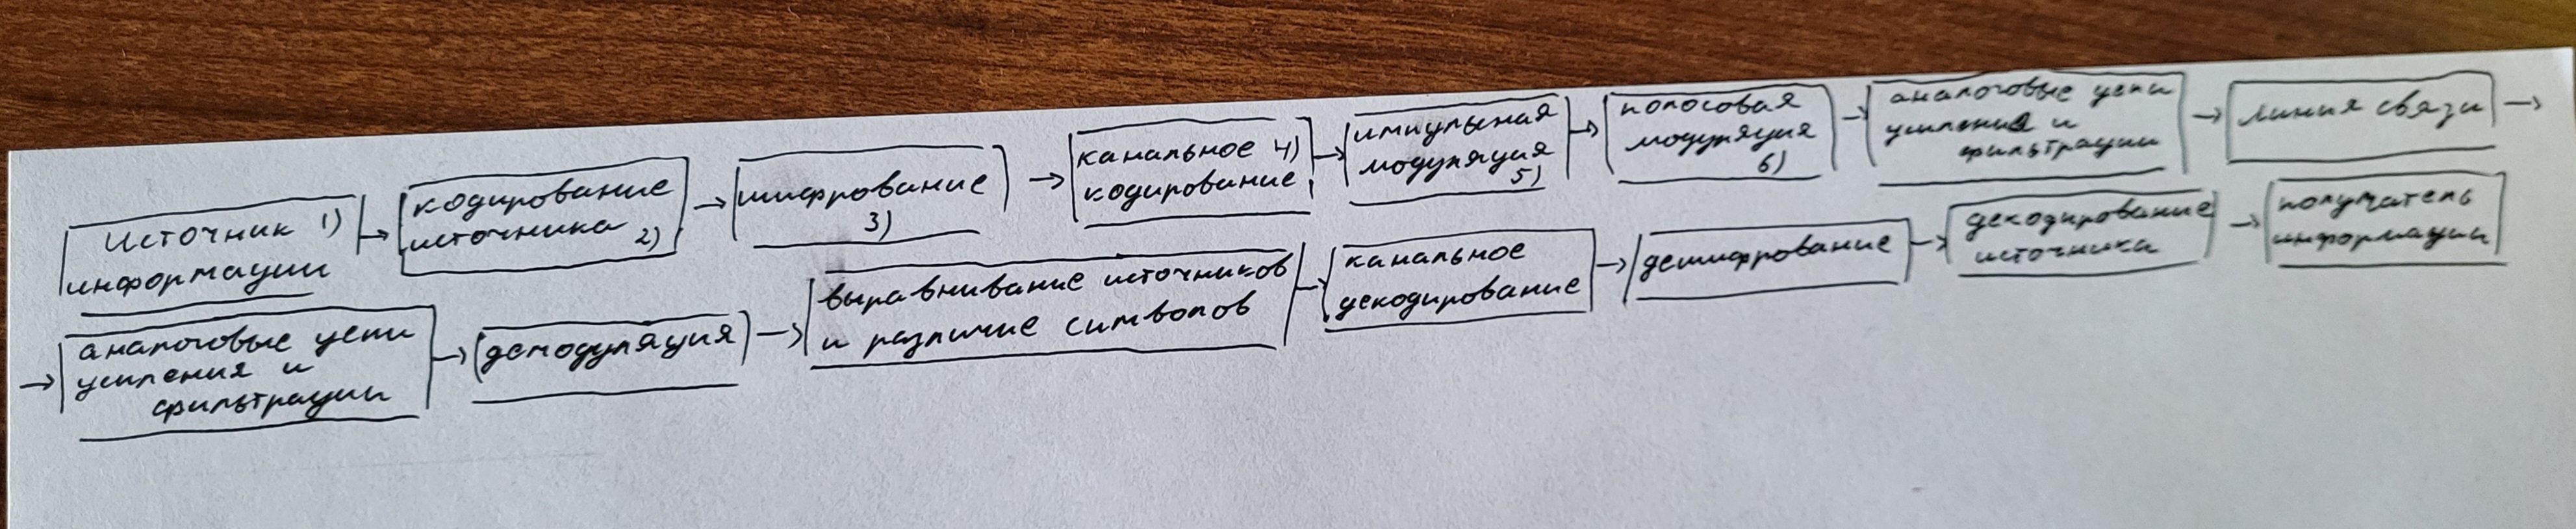 Источник 1)
информации
кодирование
источника 2)
шифрование
3)
канальное 4)
кодирование
импульсная
модуляция
5)
полосовая
модуляция
6)
аналоговые цепи
усиления и
фильтрации
линия связи
аналоговые цепи
усиления и
фильтрации
демодуляция
выравнивание источников
и различие символов
канальное
декодирование
дешифрование
декодирование
источника
получатель
информации